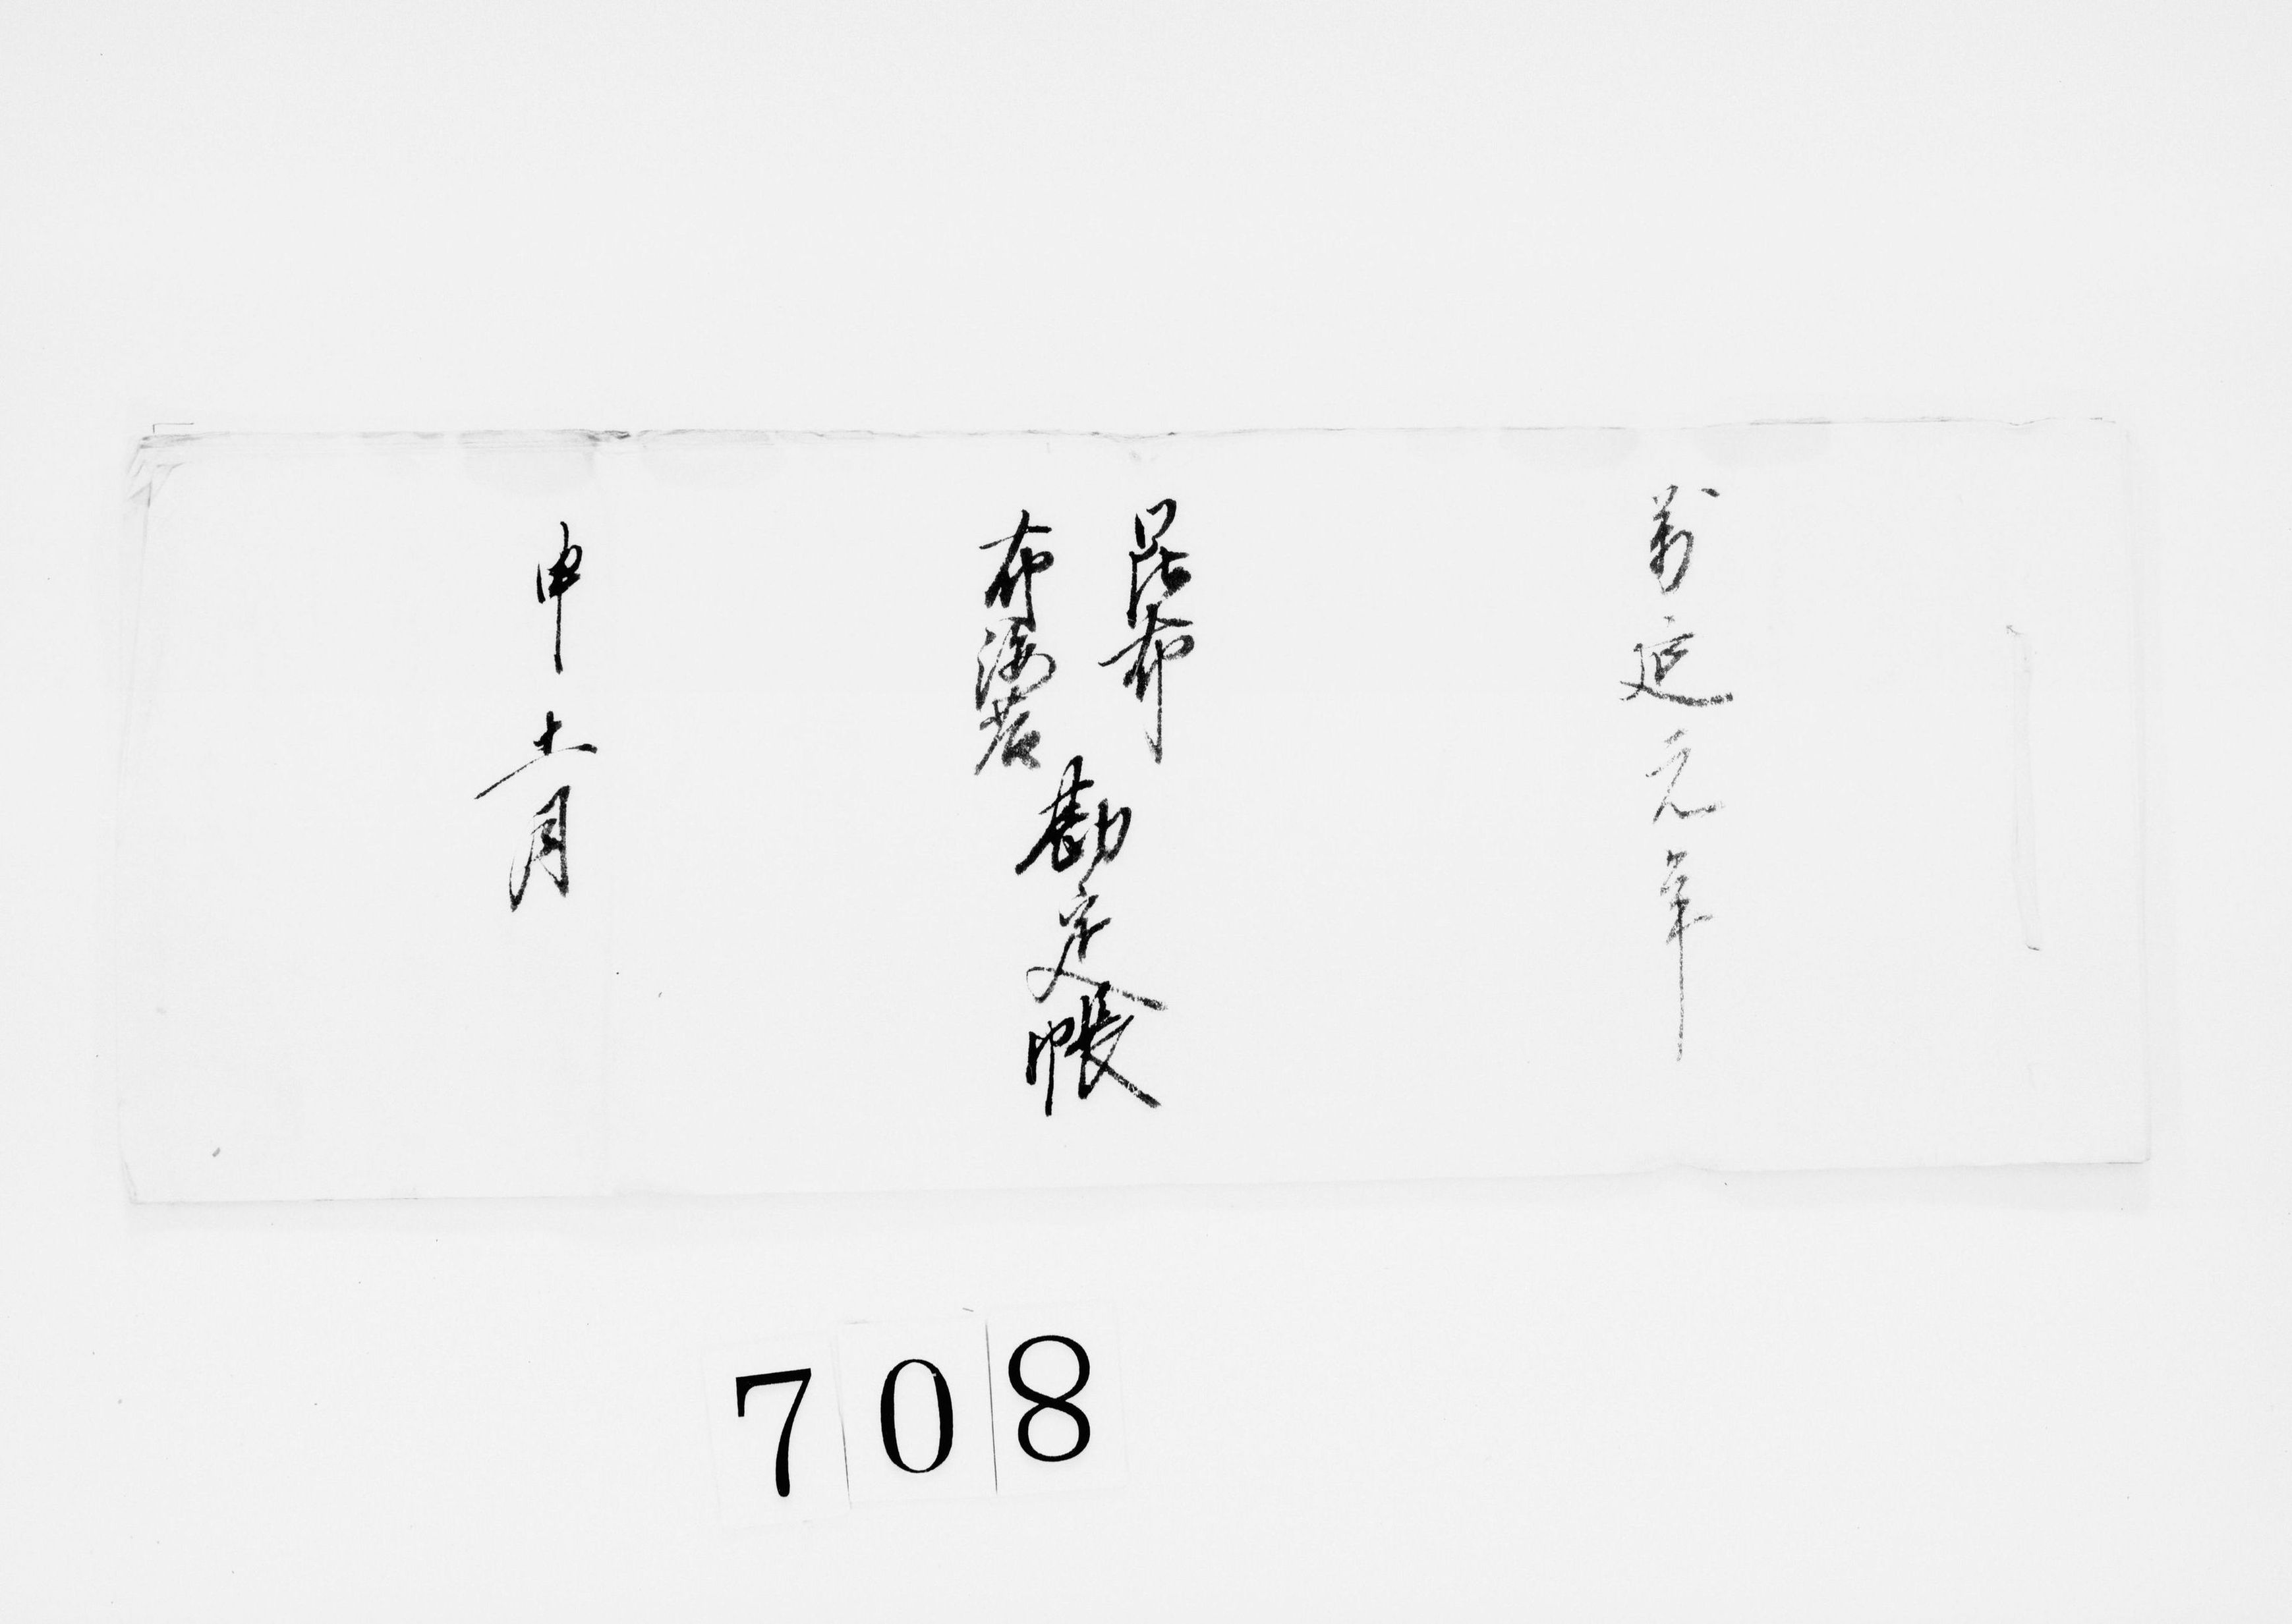 萬延元年
昆布
布海苔
勘定帳
申十一月
708